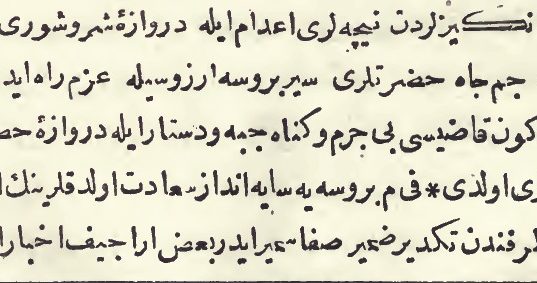 نكيزلردن نيچه‌لرى اعدام ايله دروازهٔ شهر و شورى
جم جاه حضرتلرى سير بروسه ارزوسيله عزم راه ايد
كون قاضيسى بى جرم و كناه جبه و دستار ايله دروازهٔ
ى اولدى * فى م بروسه يه سايه انداز سعادت اولدقلرينك
طرفندن تكدير ضمير صفا سمير ايدر بعض اراجيف اخبار